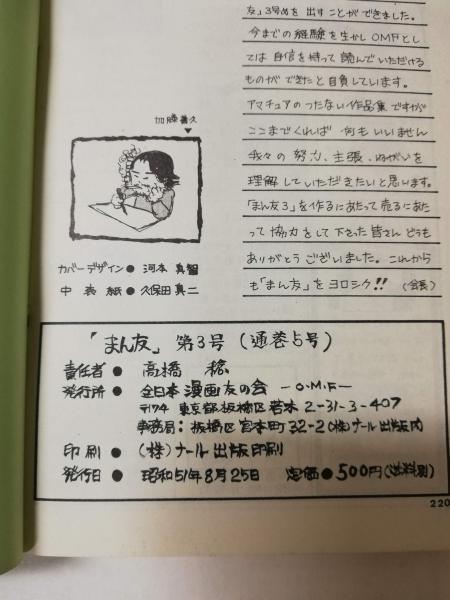 友」3号めを出すことができました。
今までの経験を生かしOMFとし
ては自信を持って読んでいただける
ものができたと自負しています。
アマチュアのつたない作品集ですが
ここまでくれば何もいいません
我々の努力、主張、ねがいを
理解していただきたいと思います。
「まん友3」を作るにあたって売るにあた
って協力をして下さった皆さんどうも
ありがとうございました。これから
も「まん友」をヨロシク!!(会長)
加藤義久
カバーデザイン●河本真智
中表紙●久保田真二
「まん友」第3号(通巻5号)
責任者●高橋稔
発行所●全日本漫画友の会-O.M.F-
〒174 東京都板橋区若木2-31-3-407
事務局:板橋区宮本町32-2(株)ナール出版内
印刷●(株)ナール出版印刷
発行日●昭和51年8月25日 定価●500円(送料別)
220